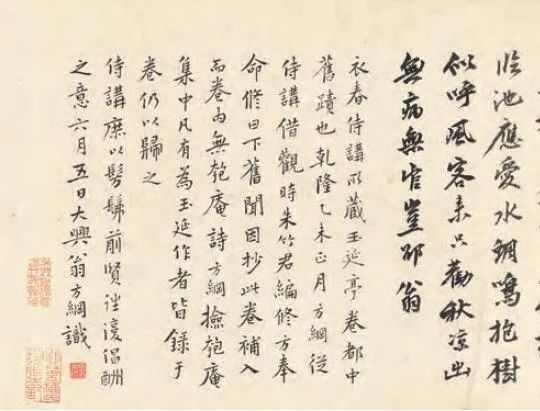 臨池應愛水綢鳴抱樹
似呼風客来只勸秋涼出
無病無官豈邵翁
衣春侍講所藏玉延亭卷都中
舊蹟也乾隆乙未正月方綱從
侍講借觀時朱竹君編修方奉
命修日下舊聞因抄此卷補入
而卷内無匏庵詩方綱撿匏庵
集中凡有為玉延作者皆錄于
卷仍以歸之
侍講庶以髣髴前賢往復倡酬
之意六月五日大興翁方綱識